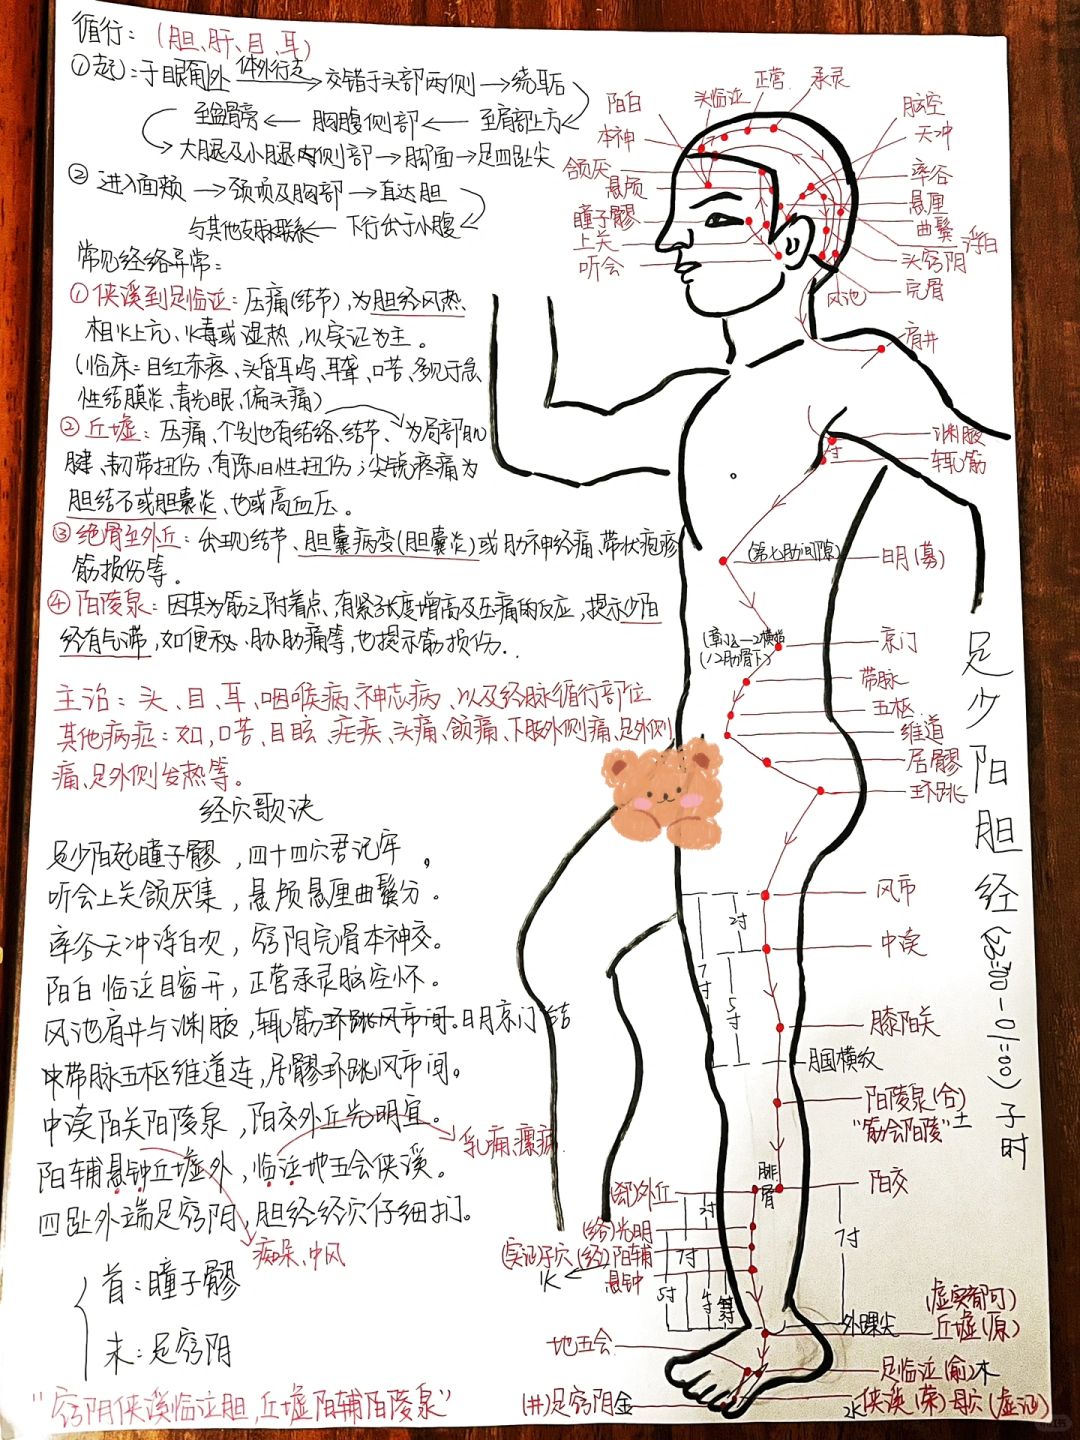 循行：（胆、肝、目、耳）
①起：于眼角外 体外行走 交错于头部两侧→绕耳后
至盆骨旁←胸腹侧部←至肩部上方
大腿及小腿内侧部→脚面→足四趾尖
②进入面颊→颈项及胸部→直达胆
与其他支脉联系←下行出于小腹
常见经络异常：
①侠溪到足临泣：压痛(结节)，为胆经风热
相火上亢、火毒或湿热，以实证为主。
(临床：目红赤疼、头昏耳鸣、耳聋、口苦、多见于急
性结膜炎、青光眼、偏头痛)
②丘墟：压痛、个别也有结络、结节、为局部肌
腱、韧带扭伤、有陈旧性扭伤；尖锐疼痛为
胆结石或胆囊炎、也或高血压。
③绝骨至外丘：出现结节、胆囊病变(胆囊炎)或肋神经痛、带状疱疹
筋损伤等。
④阳陵泉：因其为筋之附着点、有紧张度增高及压痛的反应，提示少阳
经有气滞，如便秘、胁肋痛等，也提示筋损伤．
主治：头、目、耳、咽喉病、神志病、以及经脉循行部位
其他病症：如，口苦、目眩、疟疾、头痛、颔痛、下肢外侧痛、足外侧
痛、足外侧发热等。
经穴歌诀
足少阳起瞳子髎，四十四穴君记牢。
听会上关颔厌集，悬颅悬厘曲鬓分。
率谷天冲浮白次，窍阴完骨本神交。
阳白临泣目窗开，正营承灵脑空怀。
风池肩井与渊腋，辄筋环跳风市间。日月京门结
中带脉五枢维道连，居髎环跳风市间。
中渎阳关阳陵泉，阳交外丘光明宜。
乳痈、瘰疬
阳辅悬钟丘墟外，临泣地五会侠溪。
四趾外端足窍阴，胆经经穴仔细扪。
痴呆、中风
首：瞳子髎
末：足窍阴
"窍阴侠溪临泣胆，丘墟阳辅阳陵泉"
正营
承灵
头临泣
阳白
本神
颔厌
悬颅
瞳子髎
上关
听会
脑空
天冲
率谷
悬厘
曲鬓
浮白
头窍阴
完骨
风池
肩井
渊腋
辄筋
3寸
(第七肋间隙)
日月(募)
(12肋骨下)
京门
带脉
五枢
维道
居髎
环跳
足少阳胆经(23:00-01:00)子时
风市
2寸
中渎
7寸
5寸
膝阳关
腘横纹
阳陵泉(合)
"筋会阳陵"土
腓骨
阳交
(郄)外丘
(络)光明
(实证)子穴(经)阳辅
火
悬钟
2寸
7寸
5寸
4寸
7寸
外踝尖
(虚实都可)
丘墟(原)
地五会
足临泣(俞)木
(井)足窍阴金
水侠溪(荥)母穴(虚证)